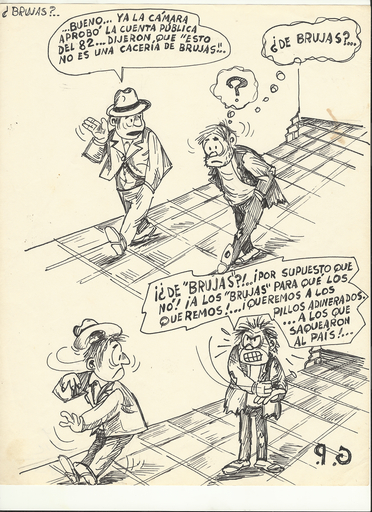 ¿BRUJAS?..
...BUENO... YA LA CÁMARA
APROBÓ LA CUENTA PÚBLICA
DEL 82... DIJERON, QUE "ESTO
NO ES UNA CACERÍA DE BRUJAS"...
¿DE BRUJAS?...
?
¡¿DE "BRUJAS?!.. ¡POR SUPUESTO QUE
NO! ¡A LOS "BRUJAS" PARA QUE LOS
QUEREMOS!... ¡QUEREMOS A LOS
PILLOS ADINERADOS.
... A LOS QUE
SAQUEARON
AL PAÍS!...
G.P.